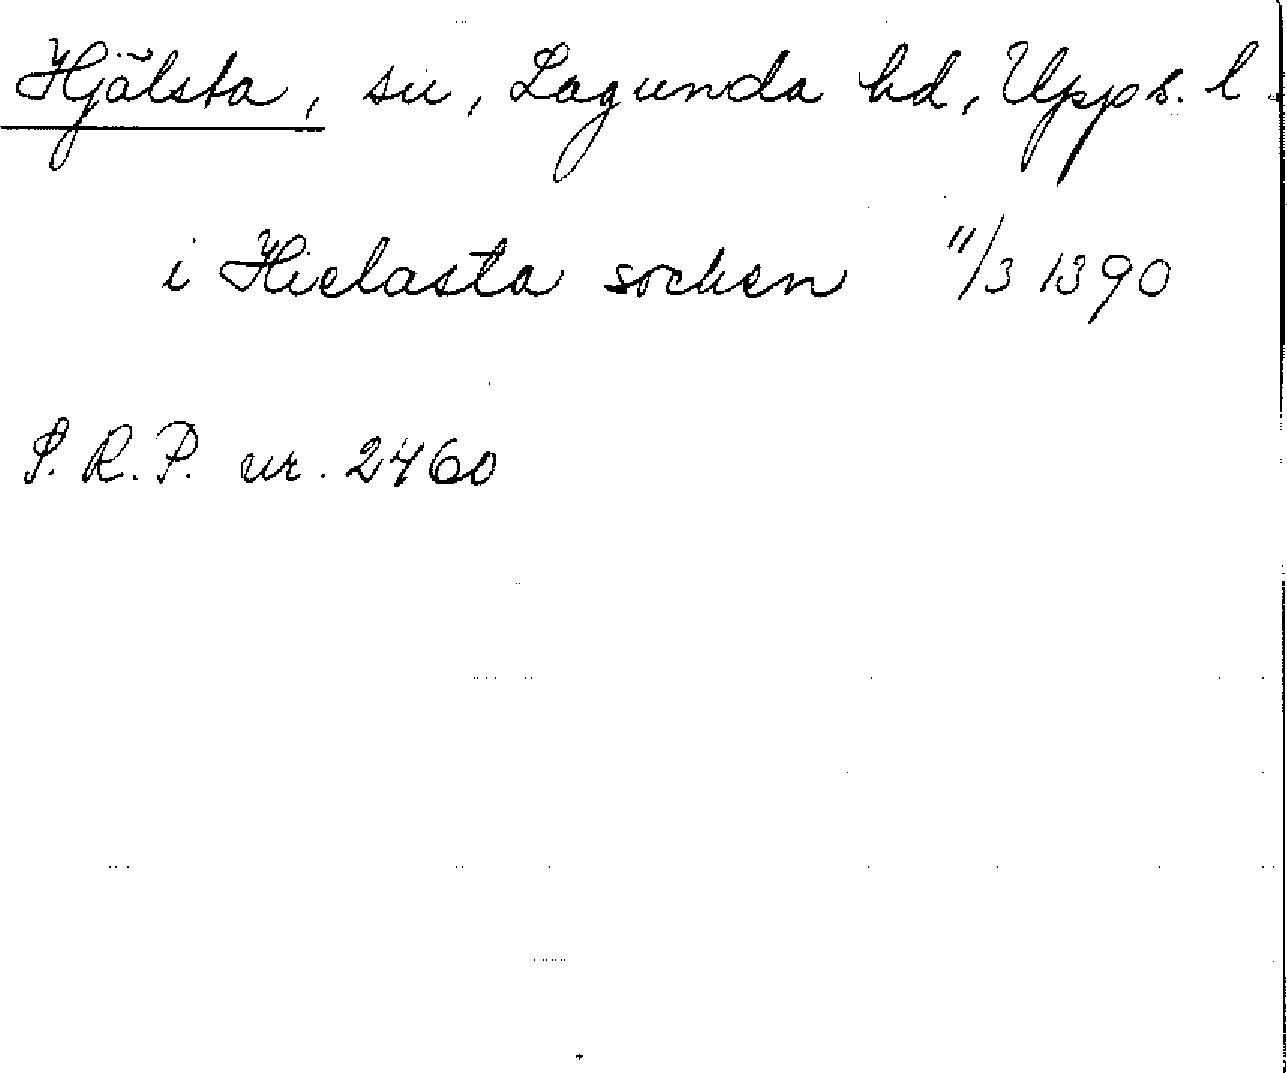 Hjälsta, sn, Lagunda hd, Upps. l.
i Hielasta socken 11/3 1390
S. R. P. nr. 2460